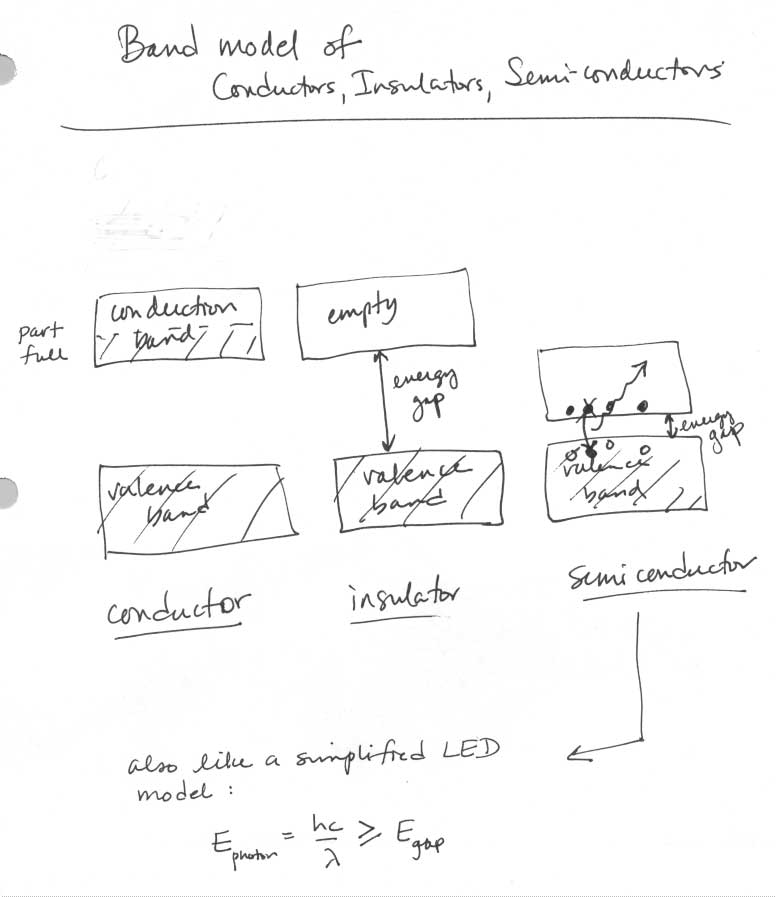 Band model of
Conductors, Insulators, Semi-conductors
part
full
conduction
band
empty
energy
gap
energy
gap
valence
band
valence
band
valence
band
conductor
insulator
semiconductor
also like a simplified LED
model :
E_photon = hc/λ ⩾ E_gap